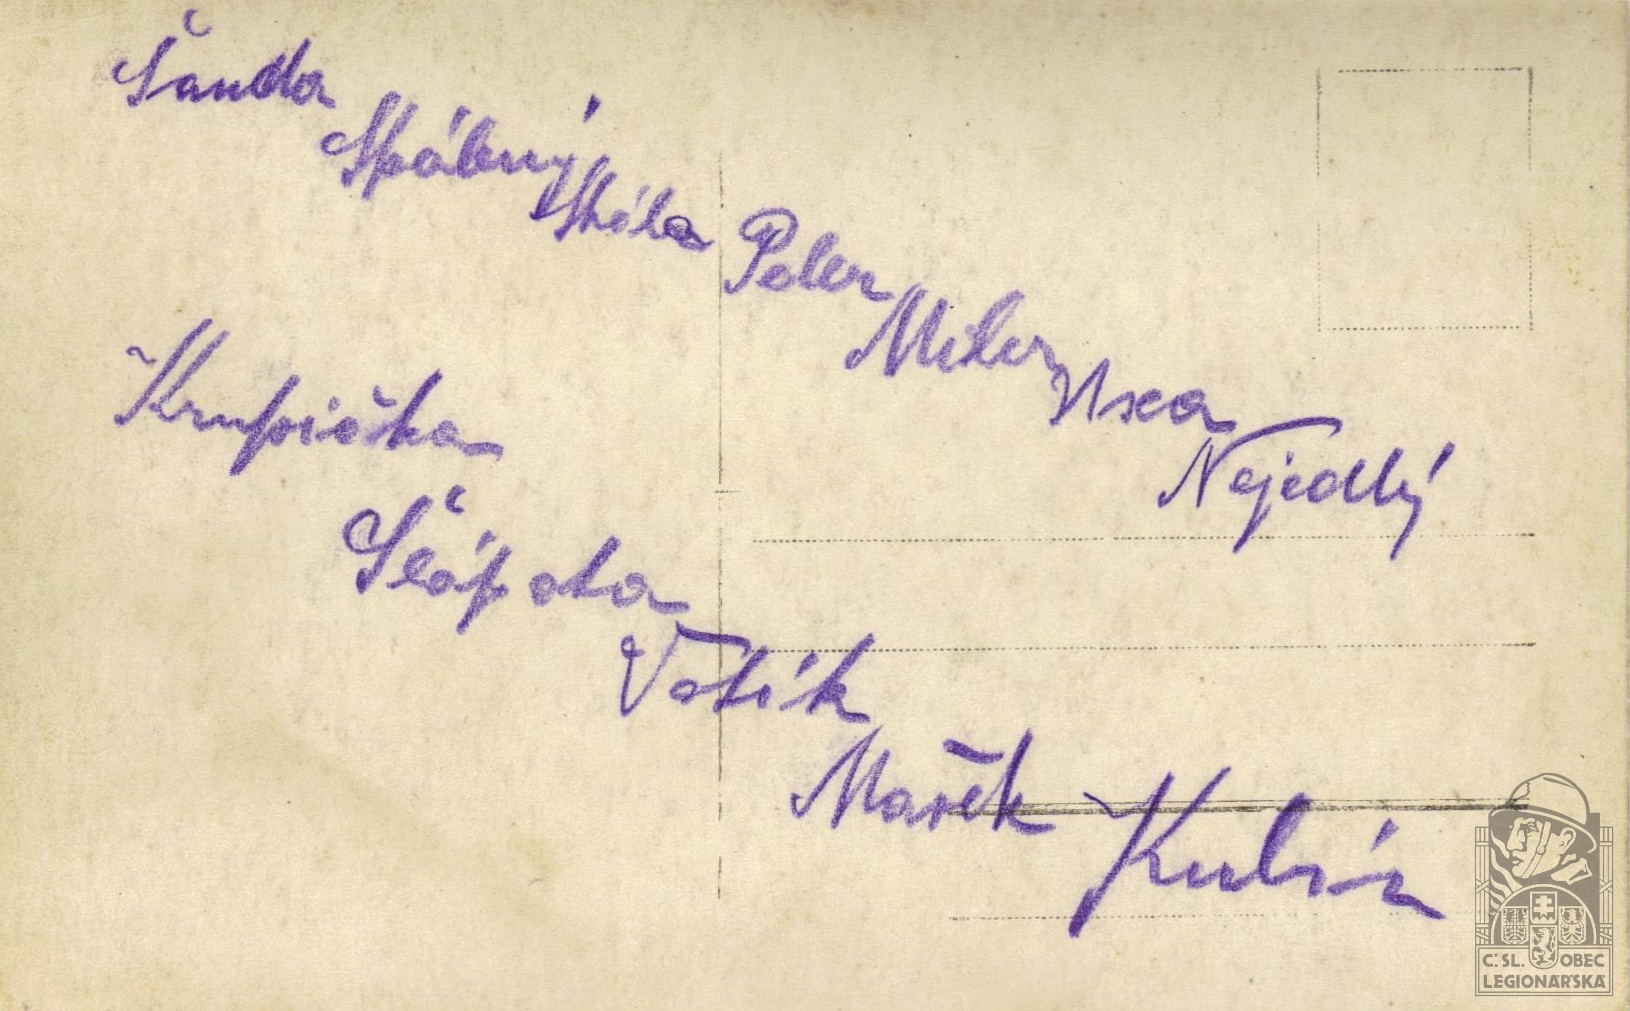 Šanda
Spálený
Skála
Peler
Miler
Uxa
Nejedlý
Krupička
Šlápota
Voták
Mařík
Kubín
Č:SL. OBEC
LEGIONÁŘSKÁ